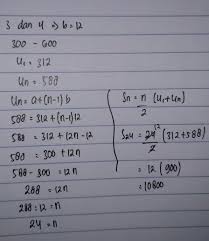 3 dan 4 => b = 12
300 - 600
U₁ = 312
Un = 588
Un = a + (n-1) b
588 = 312 + (n-1) 12
588 = 312 + 12n - 12
588 = 300 + 12n
588 - 300 = 12n
288 = 12n
288 : 12 = n
24 = n
Sn = n/2 (U₁ + Un)
S24 = 24/2 12 (312 + 588)
= 12 (900)
= 10800